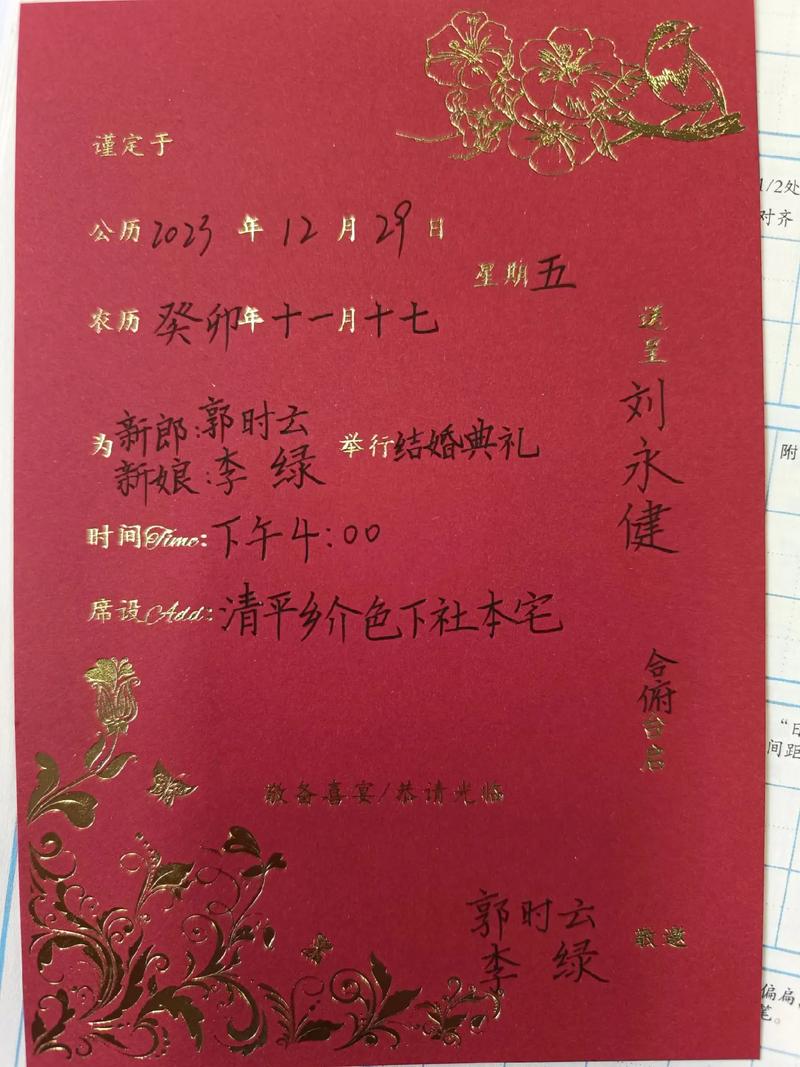 谨定于
公历2023年12月29日
星期五
农历癸卯年十一月十七
为新郎:郭时云
新娘:李绿
举行结婚典礼
时间Time:下午4:00
席设Add:清平乡介色下社本宅
送呈
刘永健
合俯
台启
敬备喜宴/恭请光临
郭时云
李绿
敬邀
1/2处
对齐
附
“日
间距
偏扁
笔。